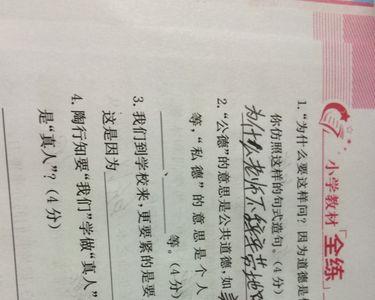 小学教材「全练」
1. “为什么要这样问？因为道德是
你仿照这样的句式造句。(4分)
为什么老师不
2. “公德”的意思是公共道德，如
等，“私德”的意思是个人
、 等。(4分)
3. 我们到学校来，更要紧的是要
这是因为
4. 陶行知要“我们”学做“真人”
是“真人”？(4分)